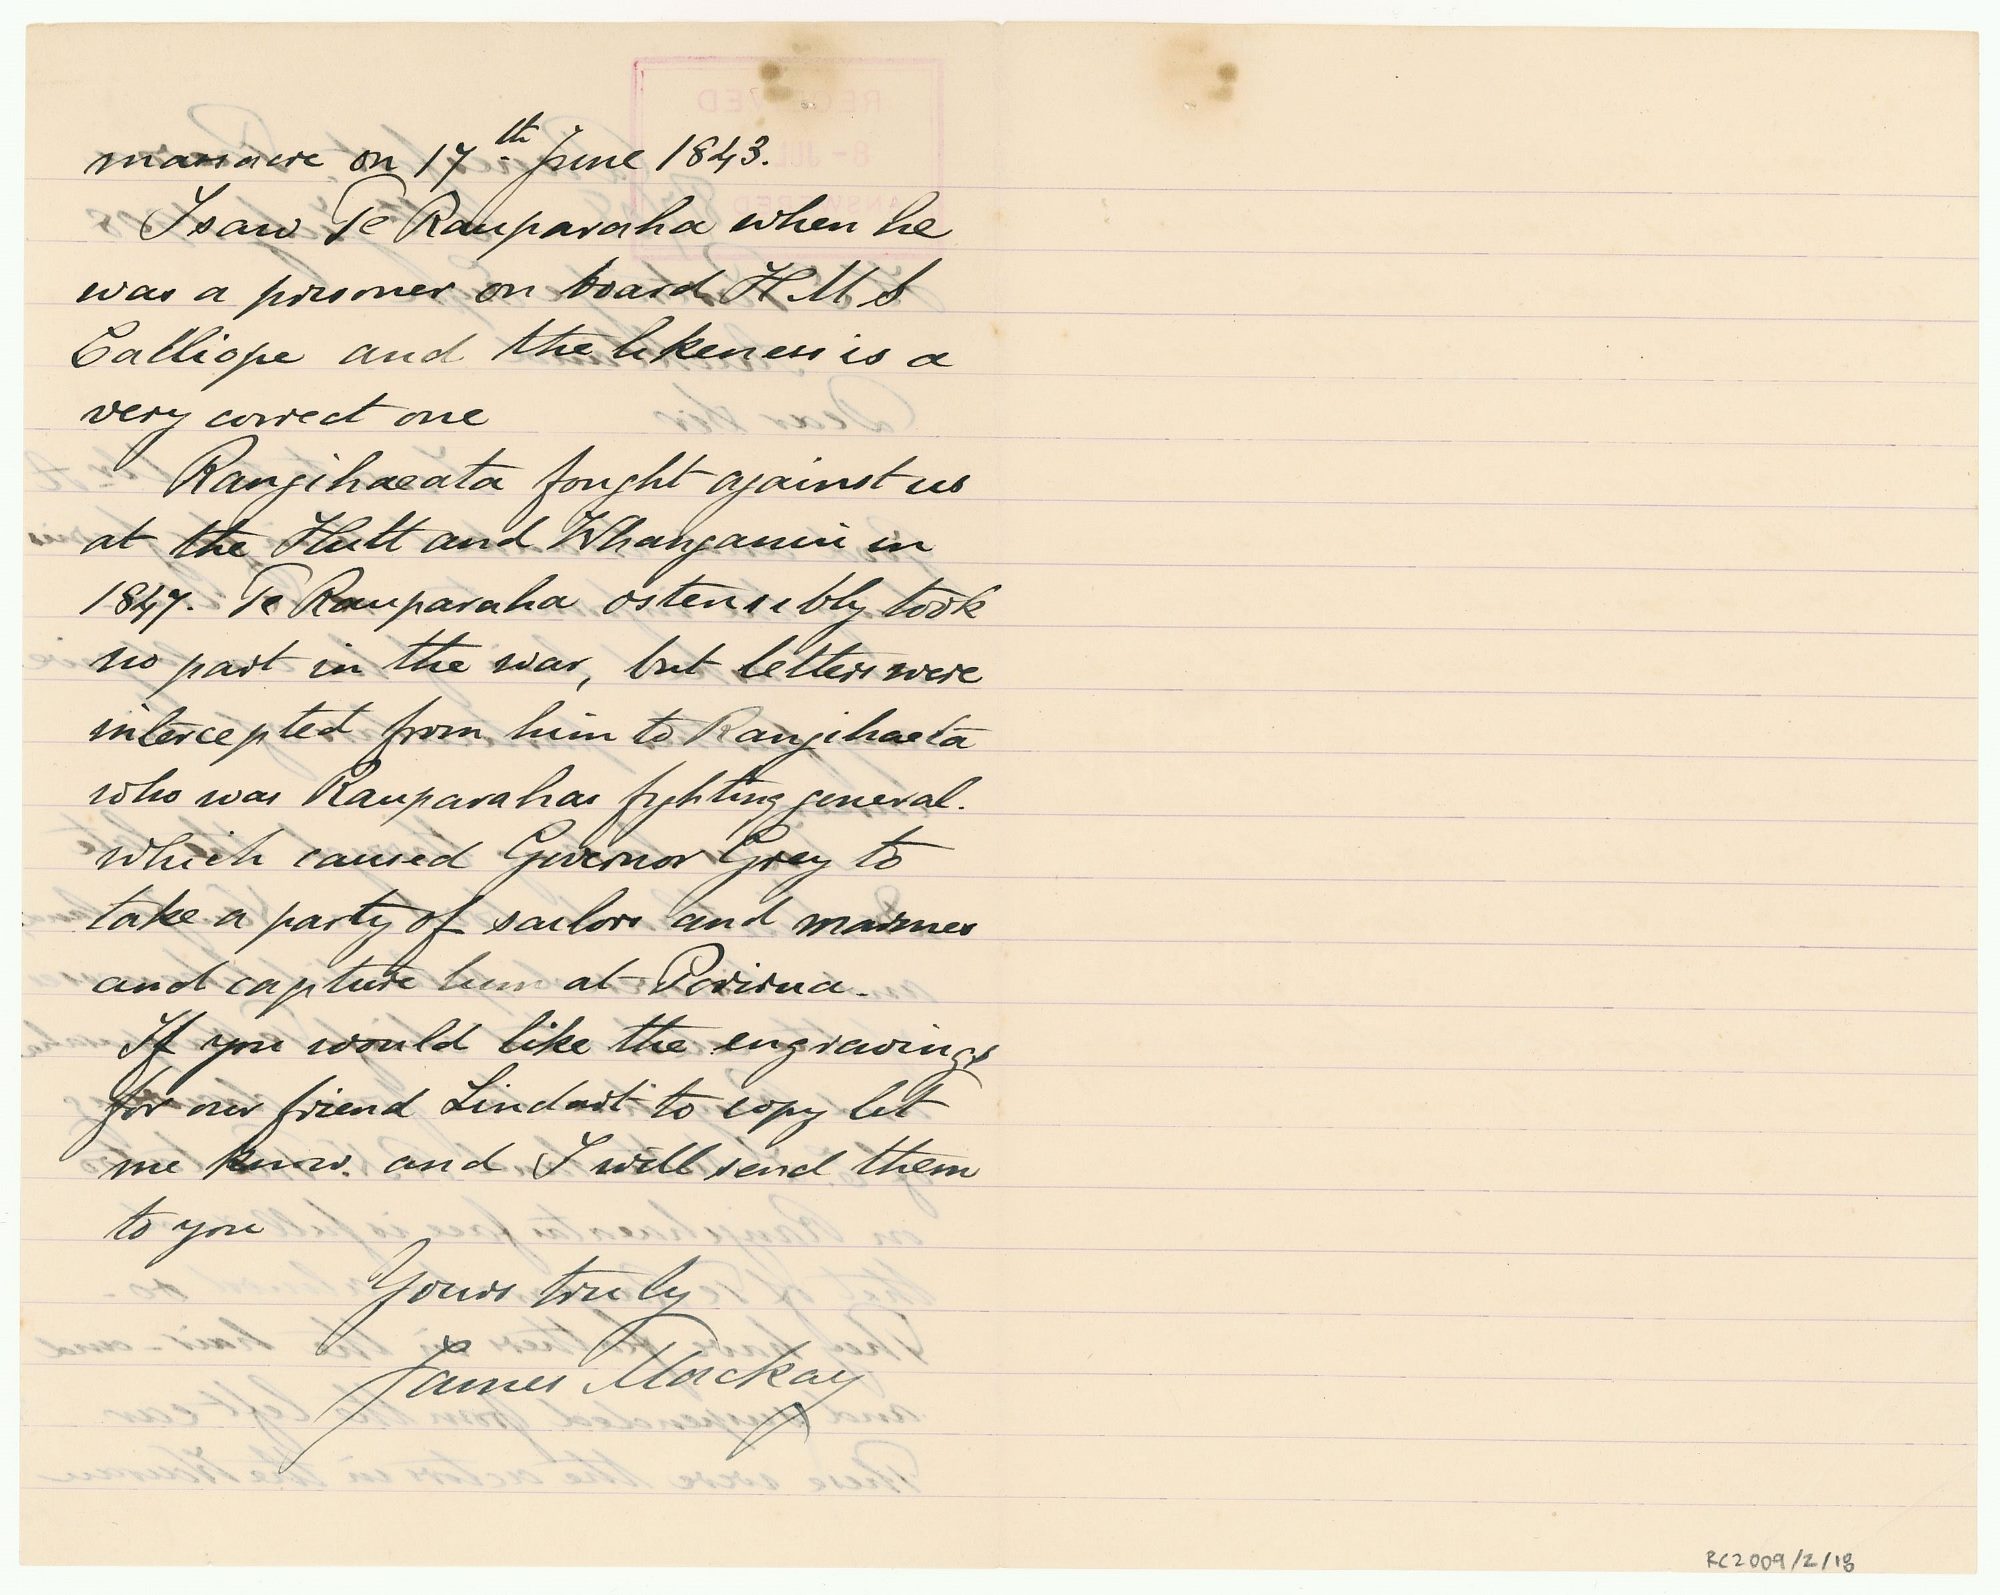 massacre on 17th June 1843.
I saw Te Rauparaha when he
was a prisoner on board H M S
Calliope and the likeness is a
very correct one
Rangihaeata fought against us
at the Hutt and Whanganui in
1847. Te Rauparaha ostensibly took
no part in the war, but letters were
intercepted from him to Rangihaeta
who was Rauparahas fighting general.
which caused Governor Grey to
take a party of sailors and marines
and capture him at Porirua.
If you would like the engravings
for our friend Lindart to copy let
me know. and I will send them
to you
Yours truly
James Mackay
RC2009/2/18